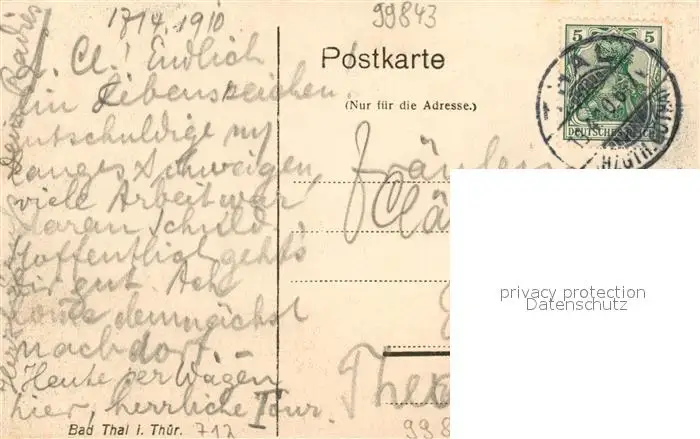 99843
17/4. 1910
L. Cl.! Endlich
ein Lebenszeichen.
Entschuldige m.
langes Schweigen,
viele Arbeit war
daran Schuld.
Hoffentlich geht's
Dir gut.
demnächst
nach dort. –
Heute per Wagen
hier, herrliche Tour.
Bad Thal i. Thür.
712
Postkarte
(Nur für die Adresse.)
5 5
DEUTSCHES REICH
THAL
Fräulein
Clä
I
998
privacy protection
Datenschutz